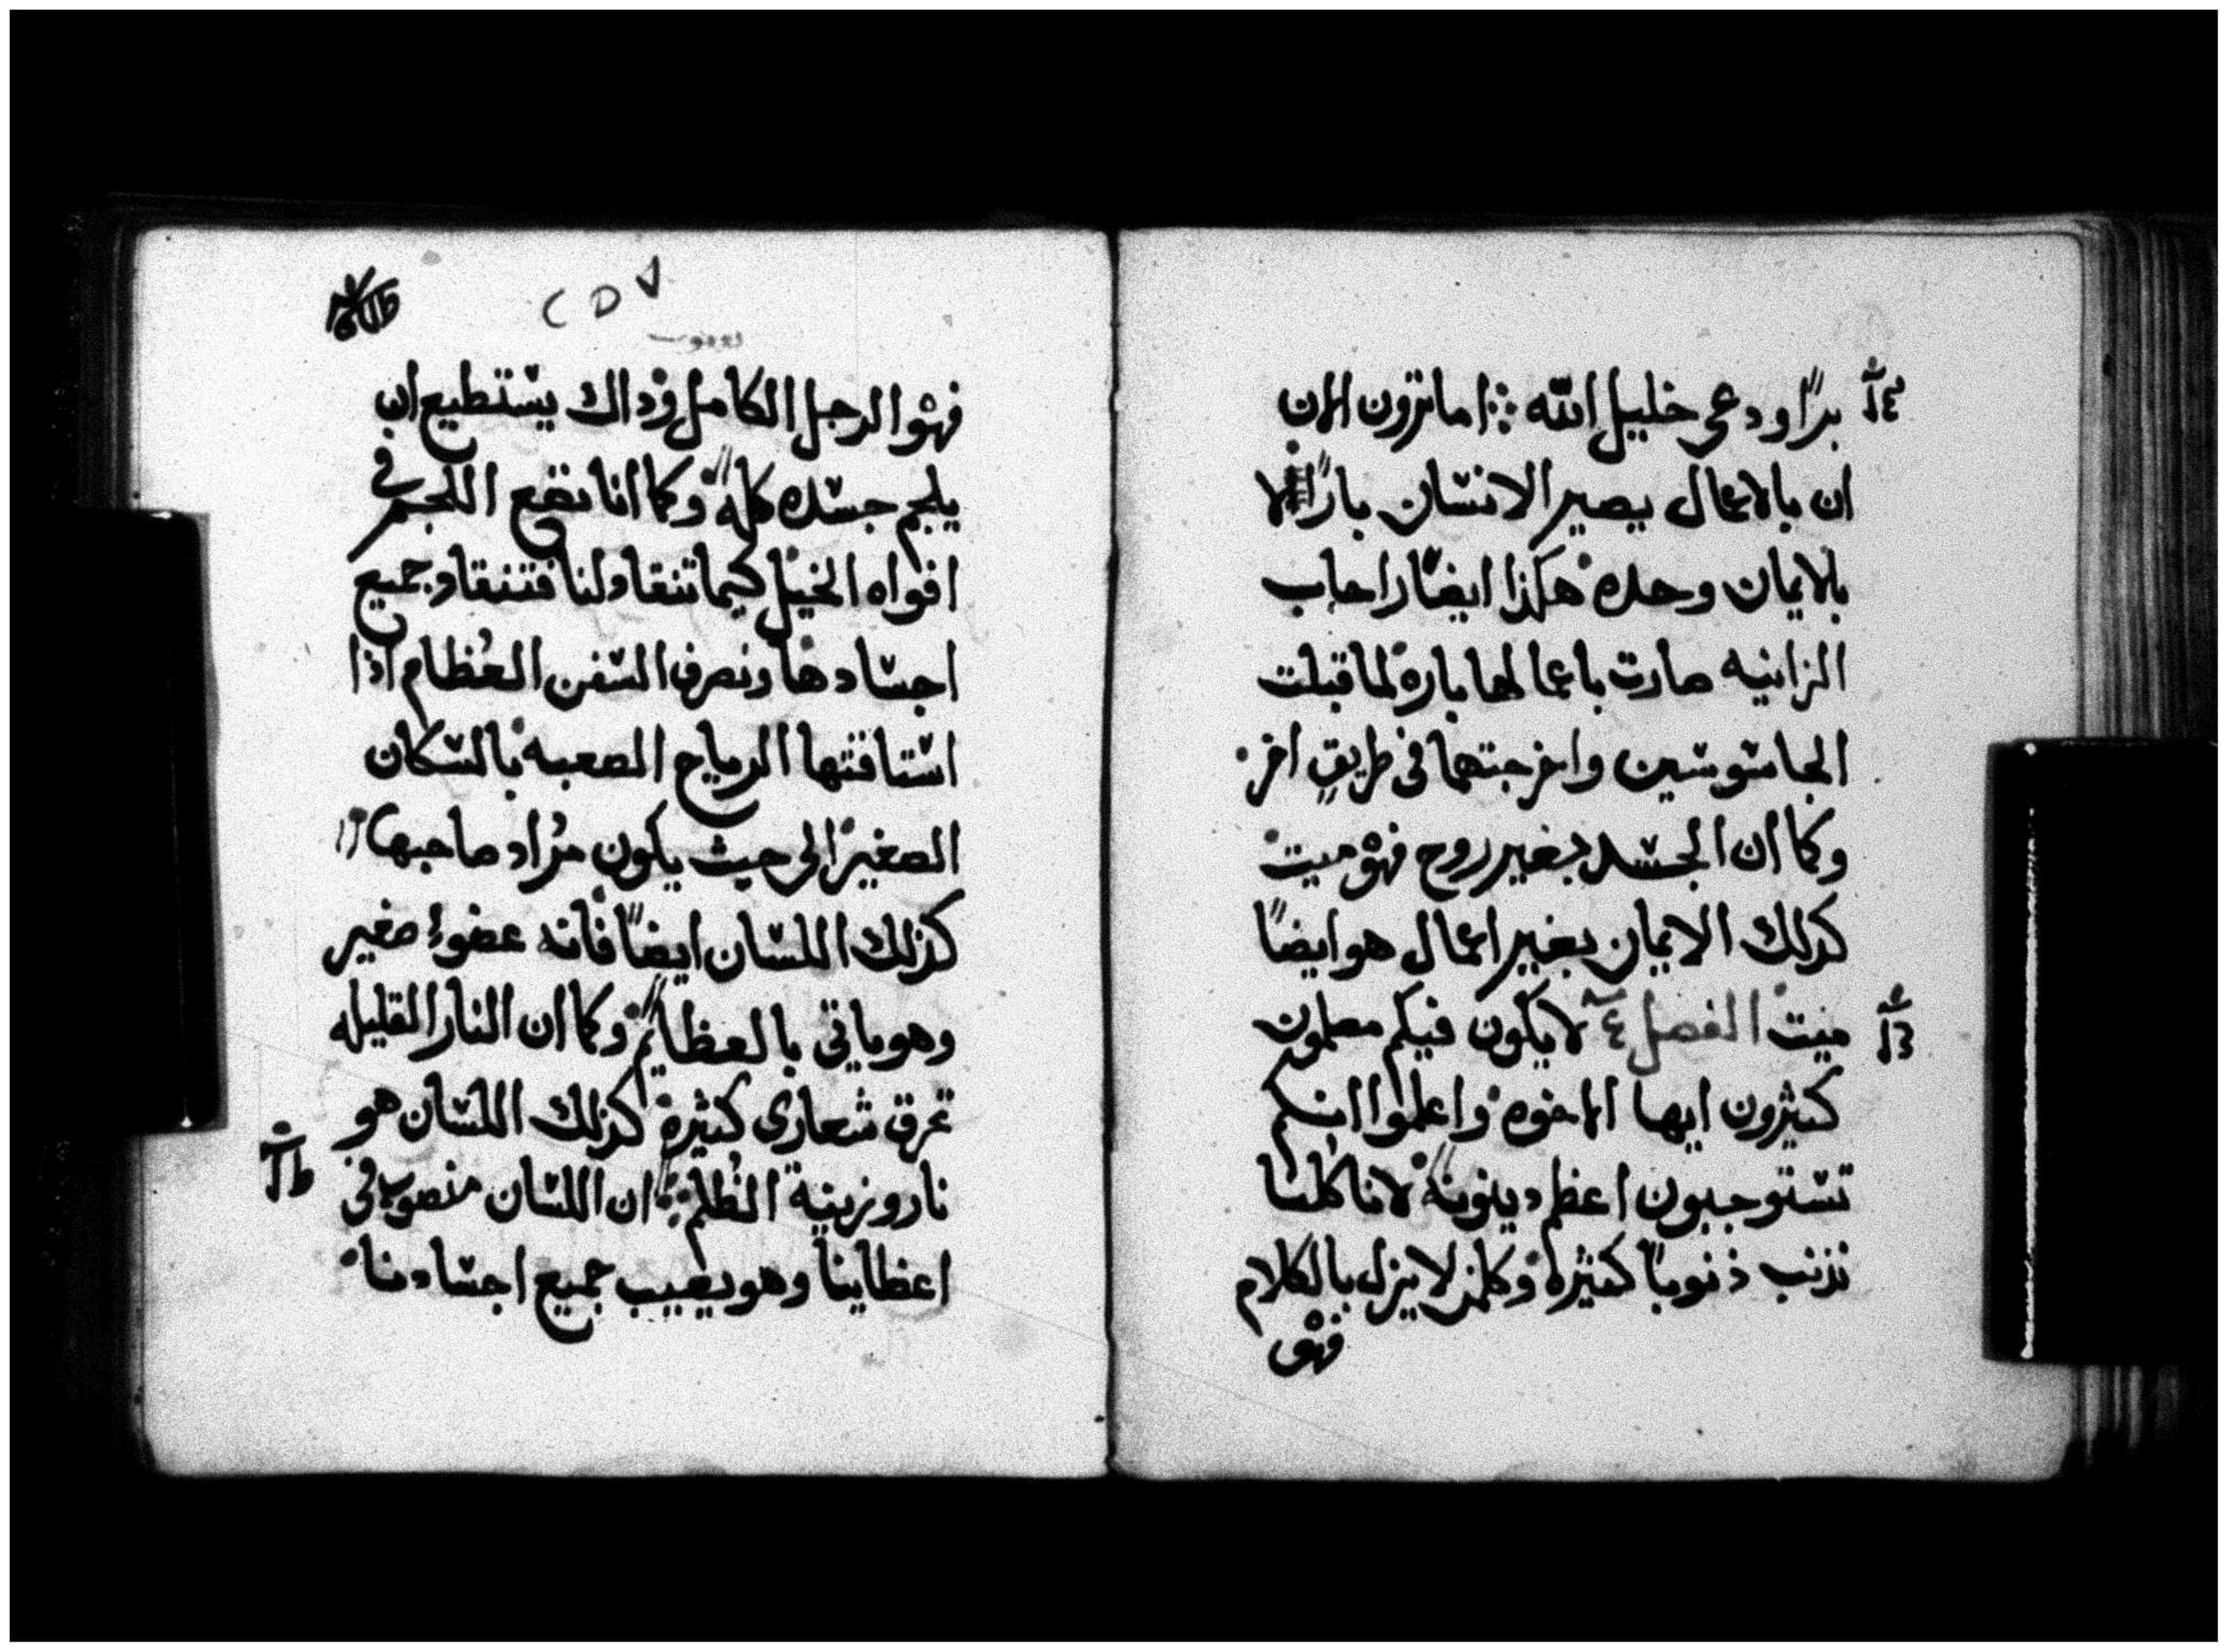 برًا ودعى خليل الله ⁘ اما ترون الان
ان بالاعمال يصير الانسان بارًا لا
بالايمان وحده هكذا ايضًا راحاب
الزانيه صارت باعمالها باره لما قبلت
الجاسوسين واخرجتهما في طريقٍ اخر
وكما ان الجسد بغير روح فهو ميت
كذلك الايمان بغير اعمال هو ايضًا
ميت الفصل ٤ لا يكون فيكم معلمون
كثيرون ايها الاخوه واعلموا انكم
تستوجبون اعظم دينونه لانا كلنا
نذنب ذنوبًا كثيره وكلمن لا يزل بالكلام
فهو
فهو الرجل الكامل وذاك يستطيع ان
يلجم جسده كله وكما انا نضع اللجم في
افواه الخيل كيما تنقاد لنا فتنقاد جميع
اجسادها ونصرف السفن العُظام اذا
استاقتها الرياح الصعبه بالسكان
الصغير الى حيث يكون مُراد صاحبها
كذلك اللسان ايضًا فانه عضوءٍ صغير
وهو ياتي بالعظايم وكما ان النار القليله
تحرق شعارى كثيره كذلك اللسان هو
نار وزينية الظُلم ⁘ ان اللسان منصوب في
اعظاينا وهو يعيب جميع اجسادنا